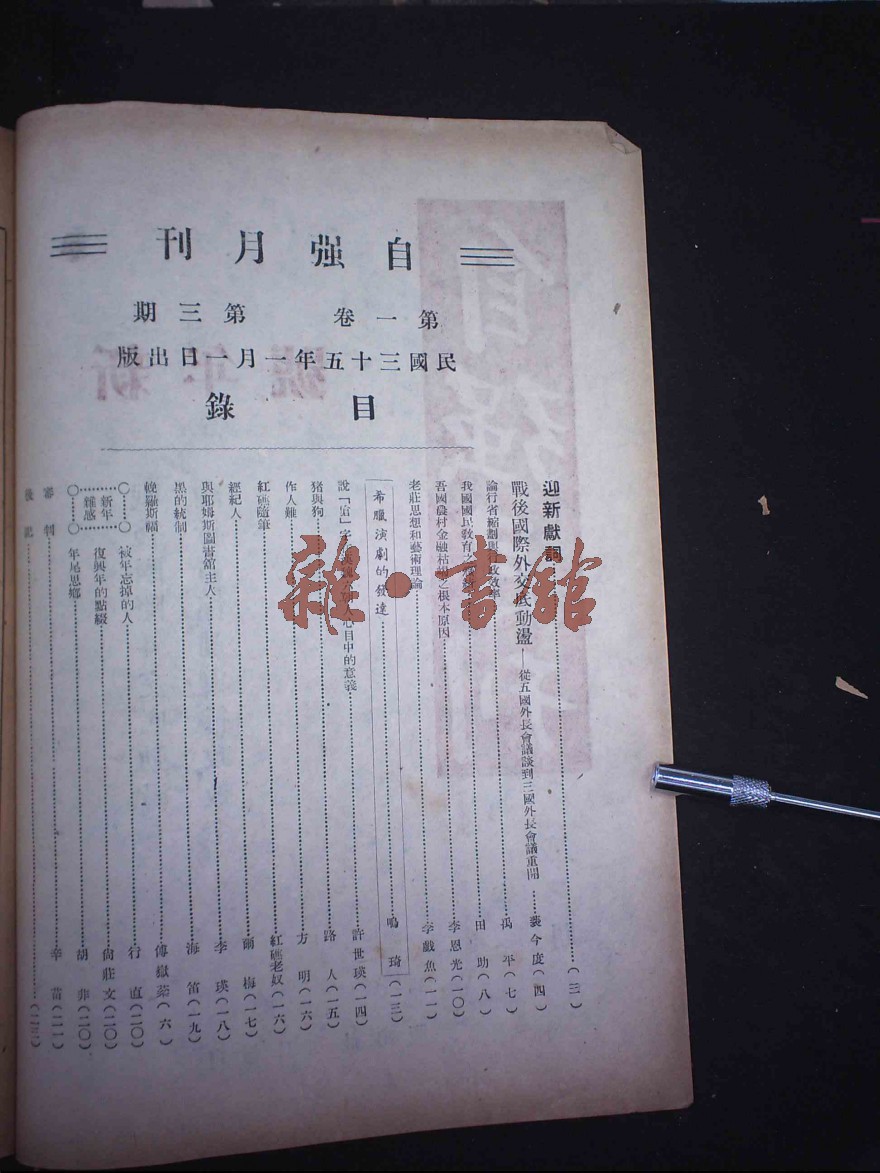 自强月刊
第一卷 第三期
民國三十五年一月一日出版
目錄
迎新獻詞……(三)
戰後國際外交底動盪——從五國外長會議談到三國外長會議重開……裴今度(四)
論行省縮劃與行政效率……禹平(七)
我國國民教育……田助(八)
吾國農村金融枯竭之根本原因……李恩光(一〇)
老莊思想和藝術理論……李戲魚(一一)
希臘演劇的發達……鳴琦(一三)
說「宙」字……心目中的意義……許世瑛(一四)
豬與狗……路人(一五)
作人難……方明(一六)
紅礁隨筆……紅礁老奴(一六)
經紀人……爾梅(一七)
與耶姆斯圖書舘主人……李瑛(一八)
黑的統制……海笛(一九)
輓融斯福……傅嶽棻(六)
新年雜感
被年忘掉的人……行直(二〇)
復興年的點綴……尙莊文(二〇)
年尾思鄉……胡非(二〇)
審判……辛苗(二一)
後記……
雜·書舘